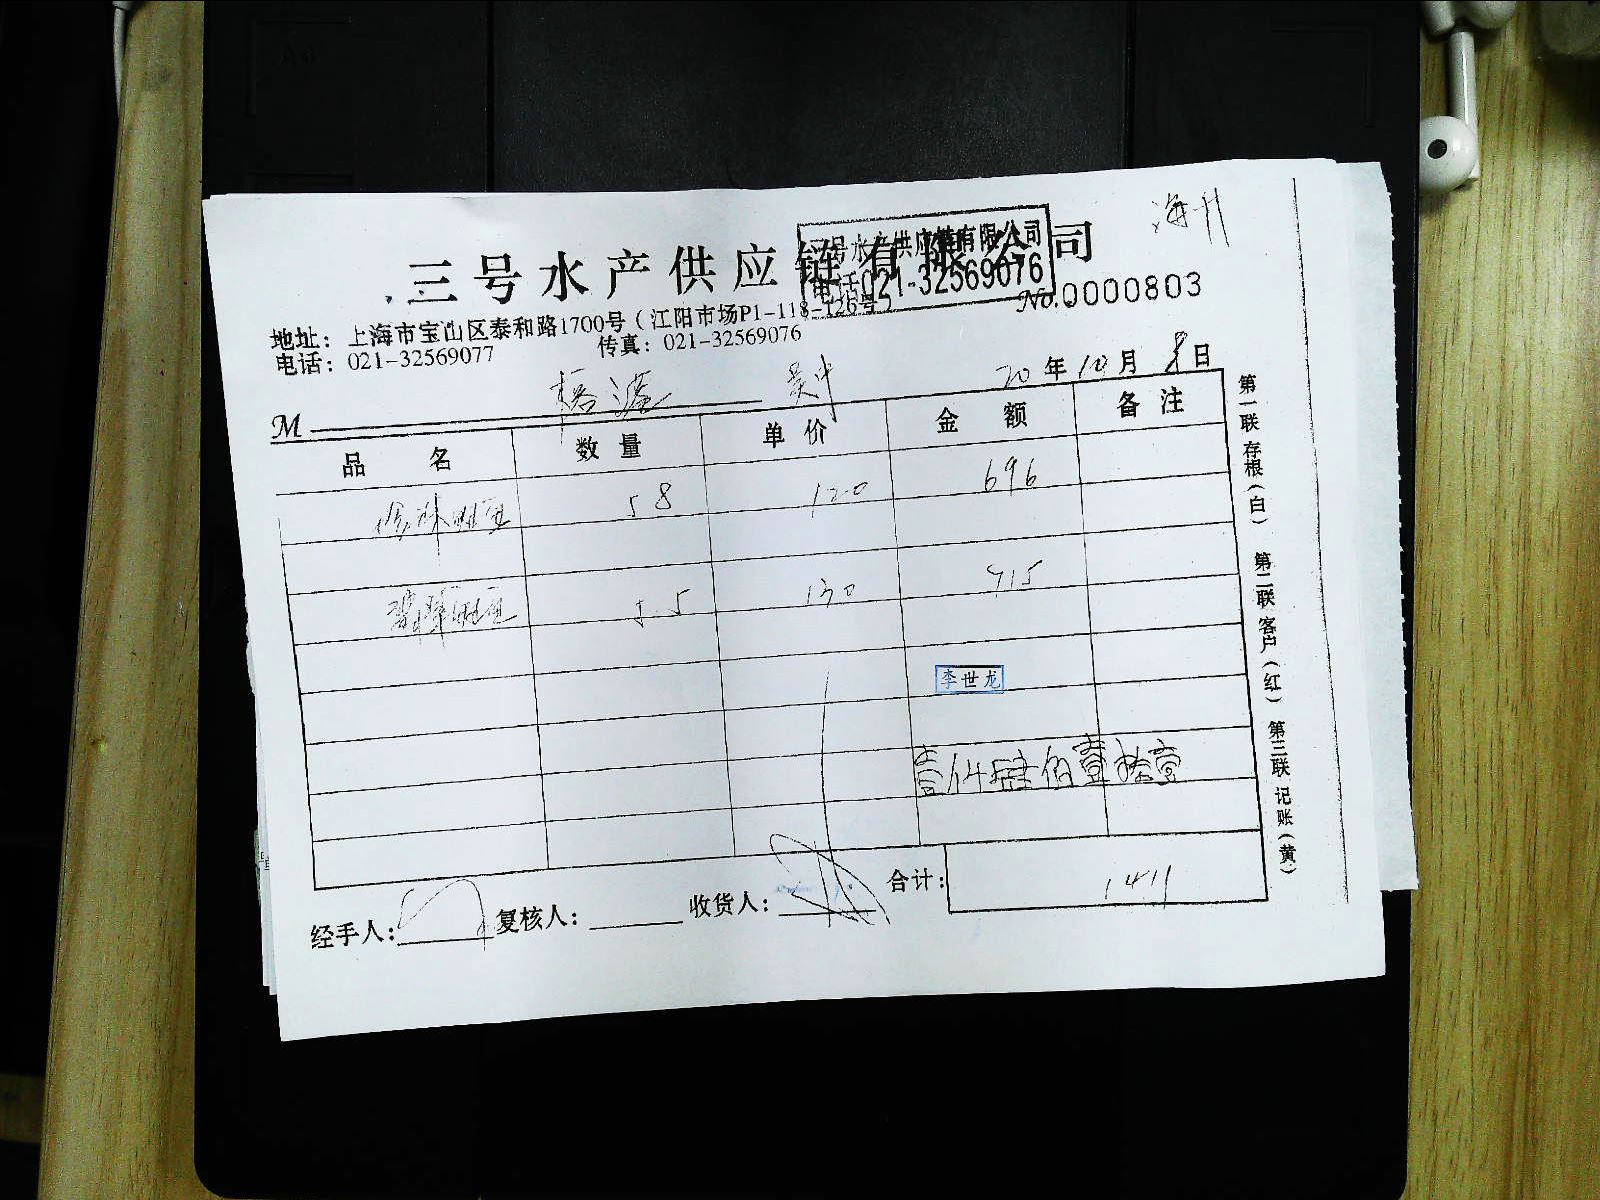 三号水产供应链有限公司
三号水产供应链有限公司
电话021-32569076
No.0000803
地址：上海市宝山区泰和路1700号（江阳市场P1-118-126号）
电话：021-32569077 传真：021-32569076
20年10月8日
M
品名 数量 单价 金额 备注
58 120 696
5.5 130 715
李世龙
壹仟肆佰壹拾壹
合计： 1411
经手人： 复核人： 收货人：
第一联 存根（白） 第二联 客户（红） 第三联 记账（黄）